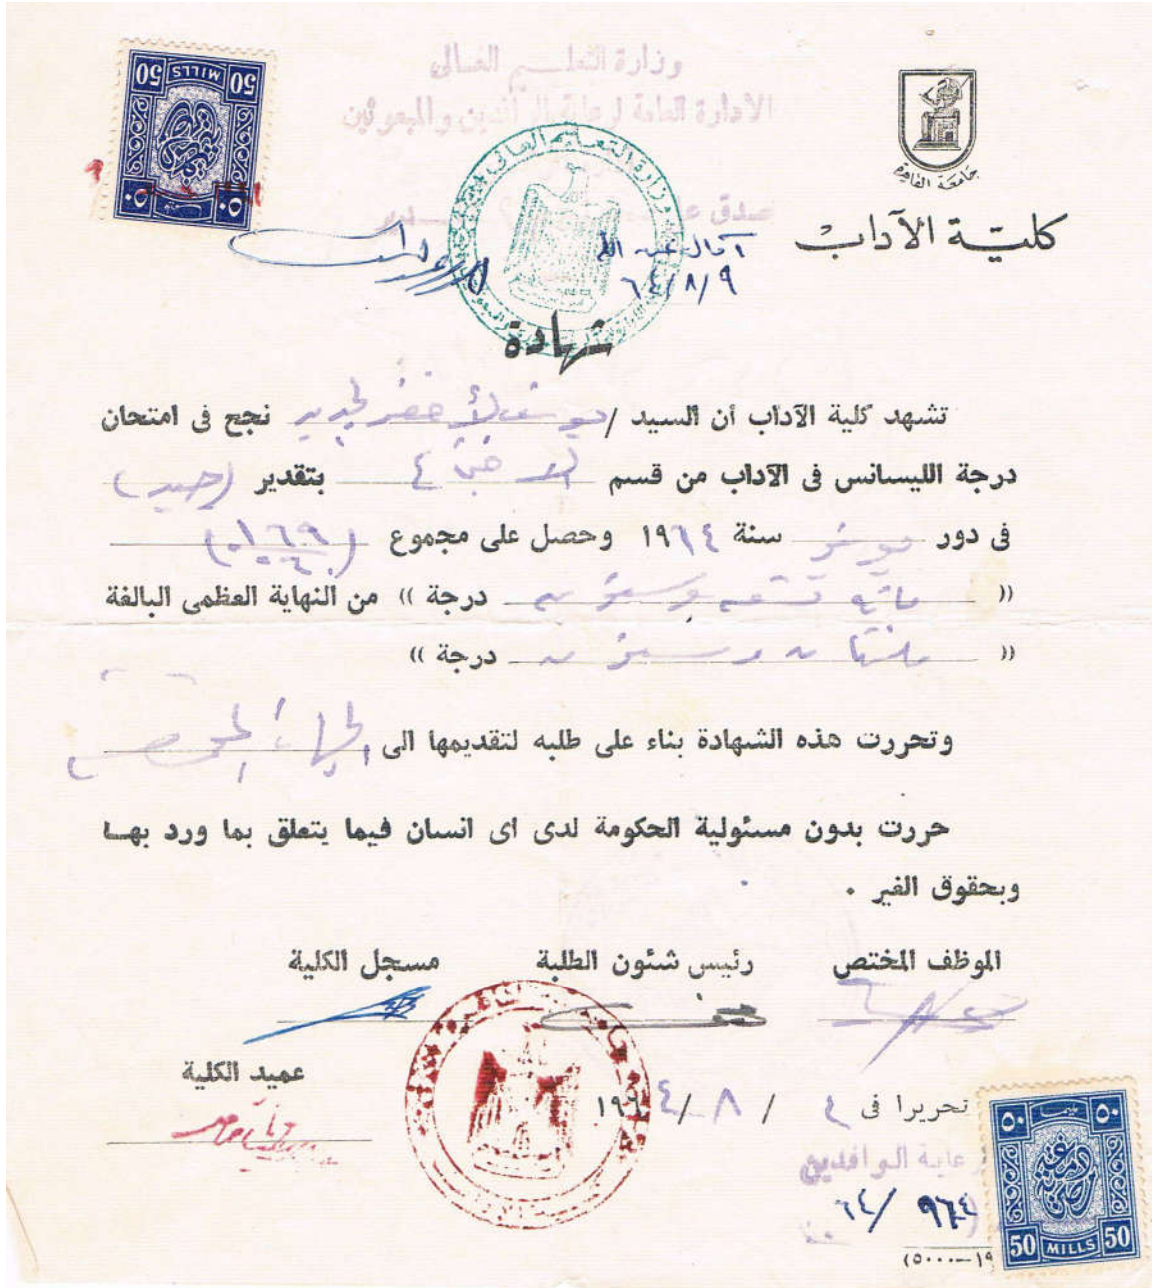 50 MILLS 50
٥٠ ٥٠
وزارة التعليم العالى
الادارة العامة لرعاية الوافدين والمبعوثين
وزارة التعليم العالى
صدق
آمال عبد الله
٦٤/٨/٩
جامعة القاهرة
كلية الآداب
شهادة
تشهد كلية الآداب أن السيد / يوسف الأخضر نجح فى امتحان
درجة الليسانس فى الآداب من قسم بتقدير (جيد)
فى دور يونيو سنة ١٩٦٤ وحصل على مجموع (١٦٩)
(( مائة تسعة وستون درجة )) من النهاية العظمى البالغة
(( مائتان وستون درجة ))
وتحررت هذه الشهادة بناء على طلبه لتقديمها الى الجهات المختصة
حررت بدون مسئولية الحكومة لدى اى انسان فيما يتعلق بما ورد بهـا
وبحقوق الغير .
الموظف المختص رئيس شئون الطلبة مسجل الكلية
عميد الكلية
تحريرا فى ٤ / ٨ / ١٩٦٤
رعاية الوافدين
٩٦٤ / ٦٤
(٥٠٠٠—١٩
٥٠ مليم ٥٠
دمغة
50 MILLS 50